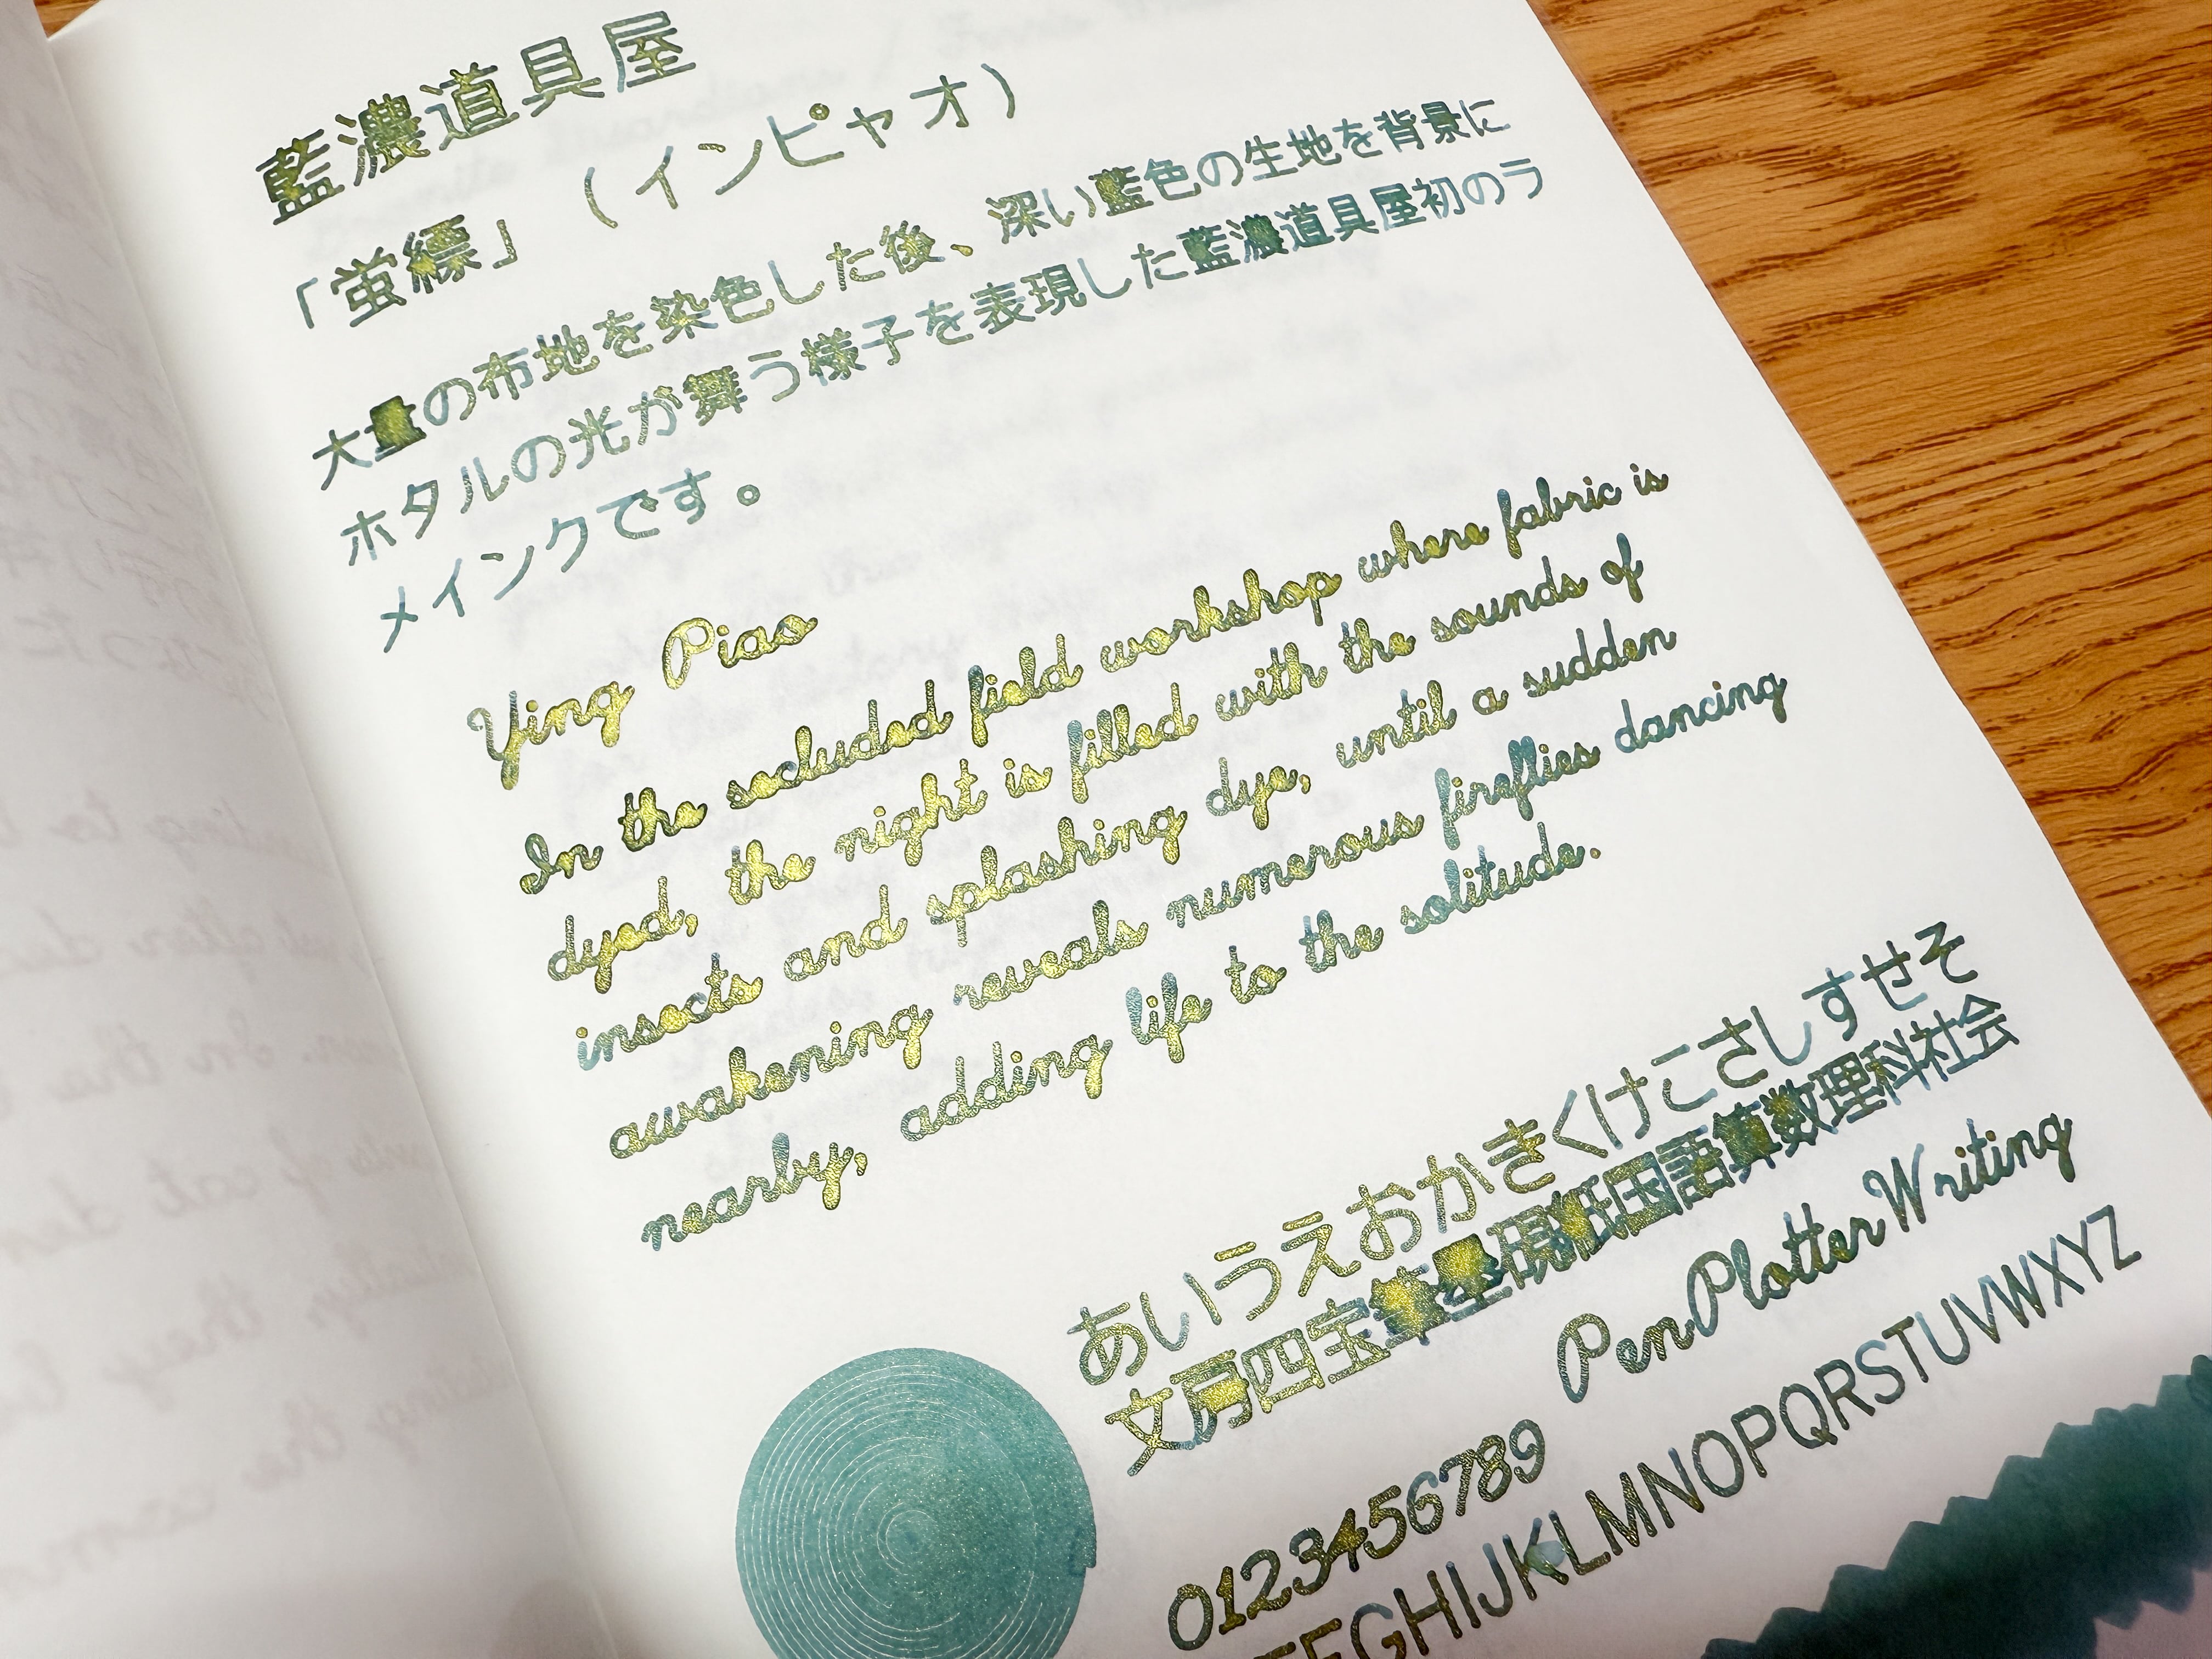 藍濃道具屋
「蛍縹」（インピャオ）
大量の布地を染色した後、深い藍色の生地を背景に
ホタルの光が舞う様子を表現した藍濃道具屋初のラ
メインクです。
Ying Piao
In the secluded field workshop where fabric is
dyed, the night is filled with the sounds of
insects and splashing dye, until a sudden
awakening reveals numerous fireflies dancing
nearby, adding life to the solitude.
あいうえおかきくけこさしすせそ
文房四宝筆墨硯紙国語算数理科社会
PenPlotterWriting
0123456789
EFGHIJKLMNOPQRSTUVWXYZ